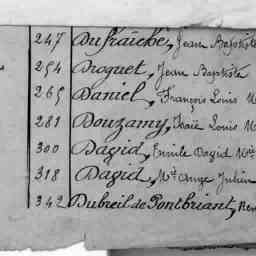 247 Dufraiche, Jean Baptiste
254 Droguet, Jean Baptiste
265 Daniel, François Louis M
281 Douzamy, Isaïe Louis M
300 Dagid, Emile Dagid
318 Dagid, Ange Julien
342 Dubreil de Pontbriant,